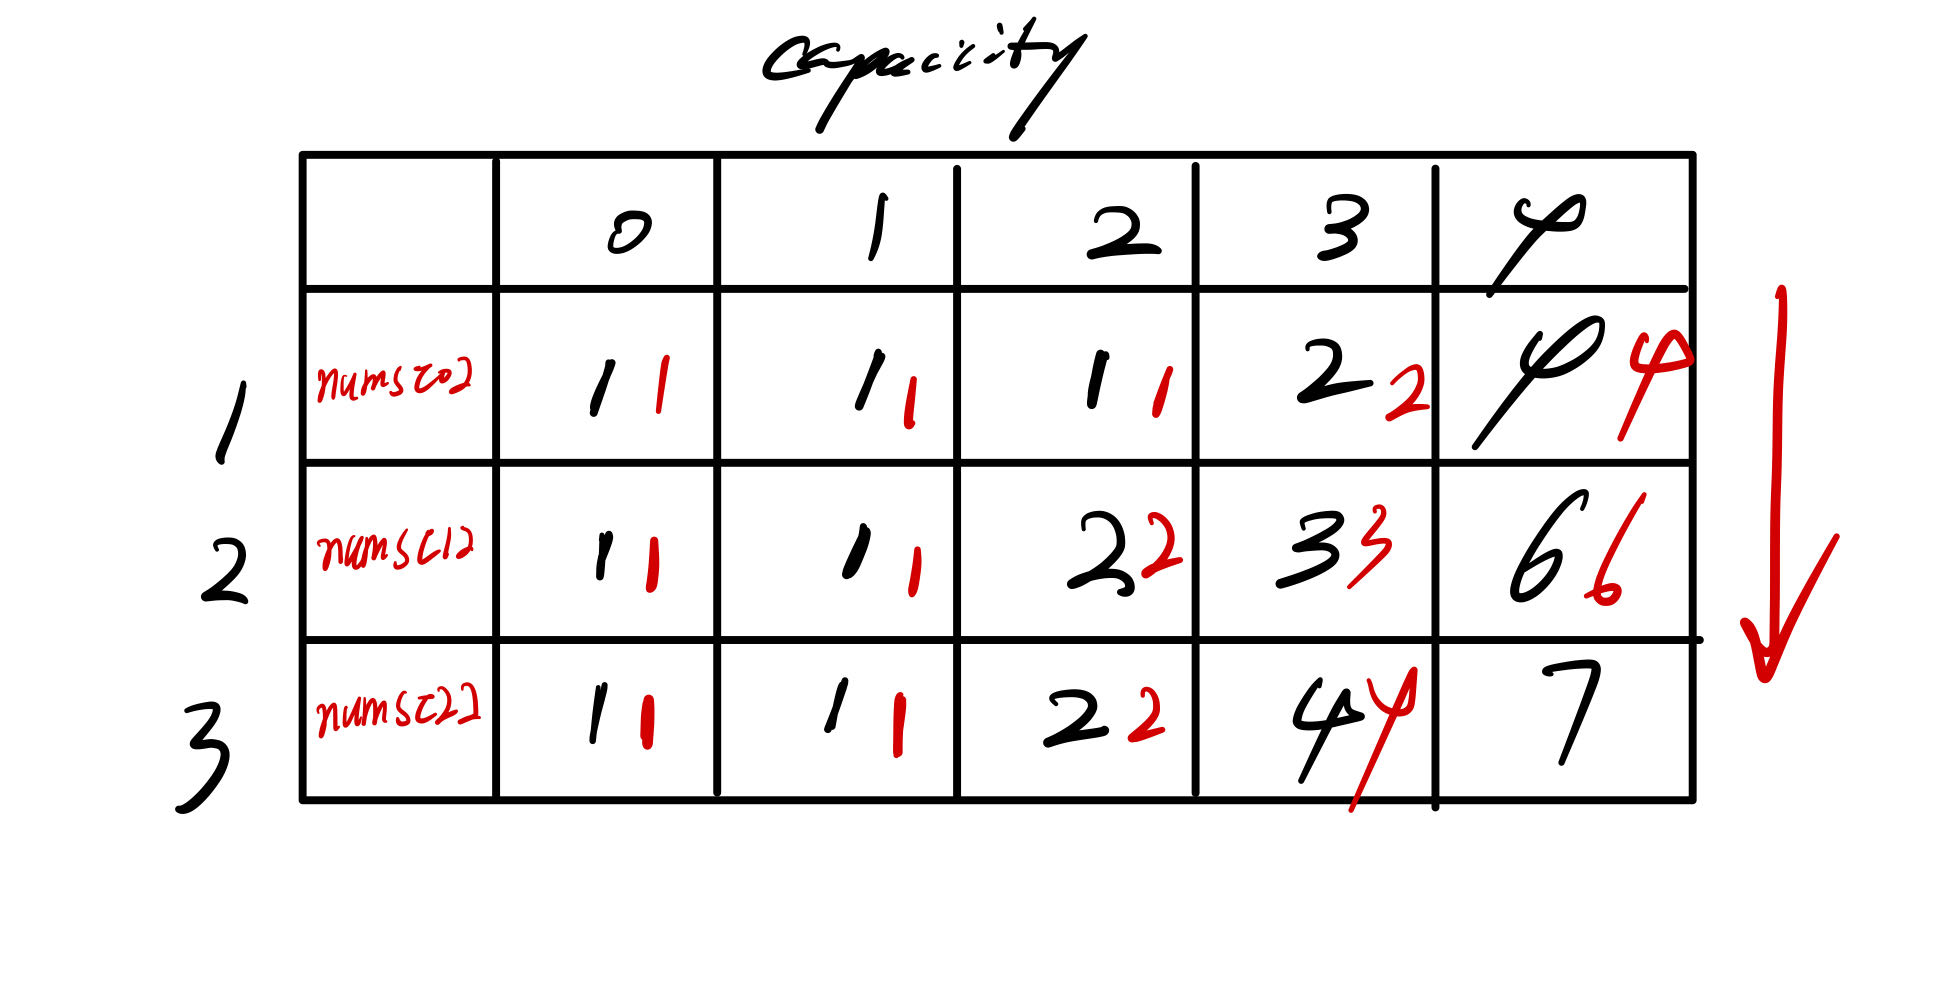 capacity
0 1 2 3 4
1 nums[0] 1 1 1 1 1 1 2 2 4 4
2 nums[1] 1 1 1 1 2 2 3 3 6 6
3 nums[2] 1 1 1 1 2 2 4 4 7